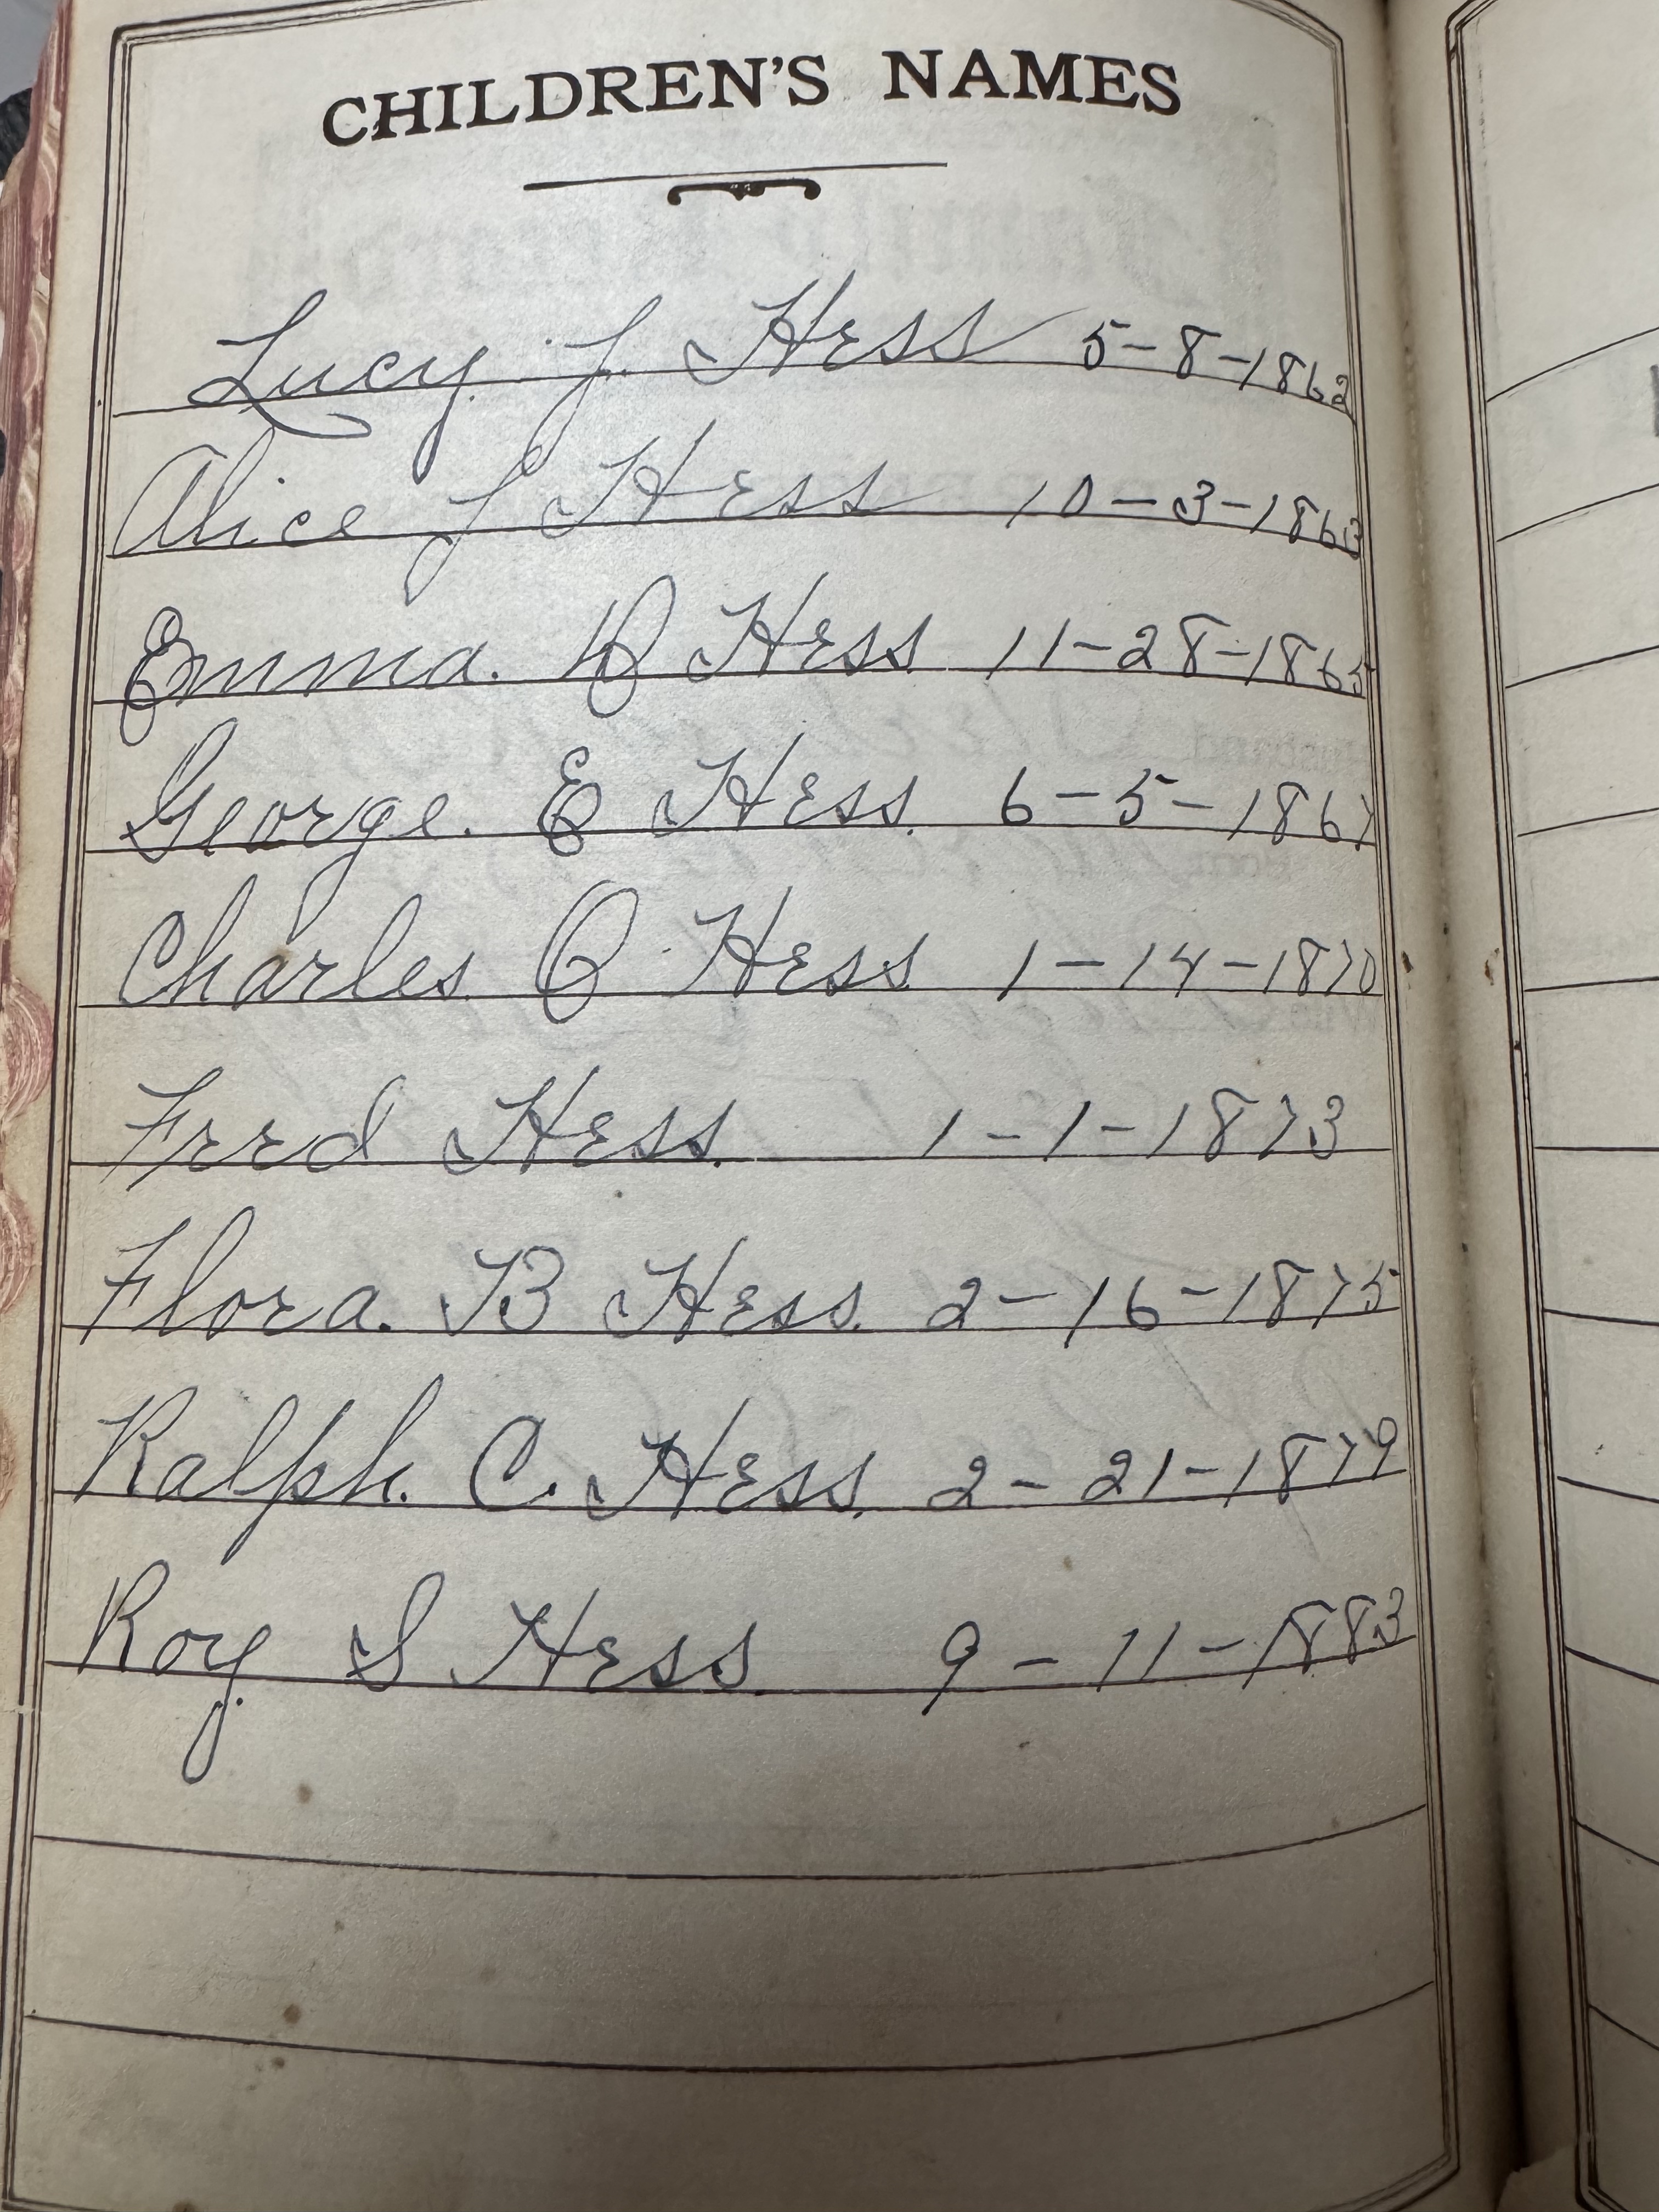 CHILDREN'S NAMES
Lucy J. Hess 5-8-1862
Alice J Hess 10-3-1863
Emma. Hess 11-28-1865
George. E Hess. 6-5-1867
Charles O Hess 1-14-1870
Fred Hess. 1-1-1873
Flora. B Hess. 2-16-1875
Ralph. C. Hess. 2-21-1879
Roy S Hess. 9-11-1883